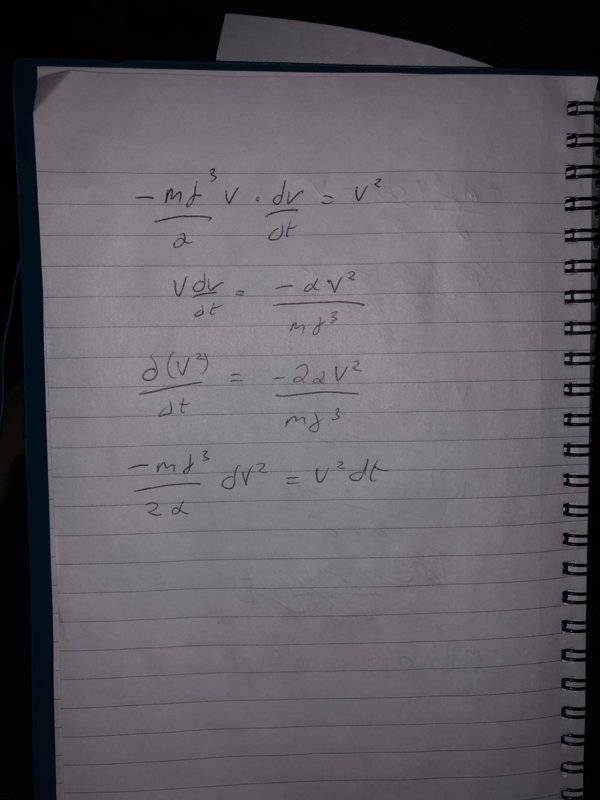 -mγ³/α V · dv/dt = V²
V dv/dt = -αV²/mγ³
d(V²)/dt = -2αV²/mγ³
-mγ³/2α dV² = V² dt